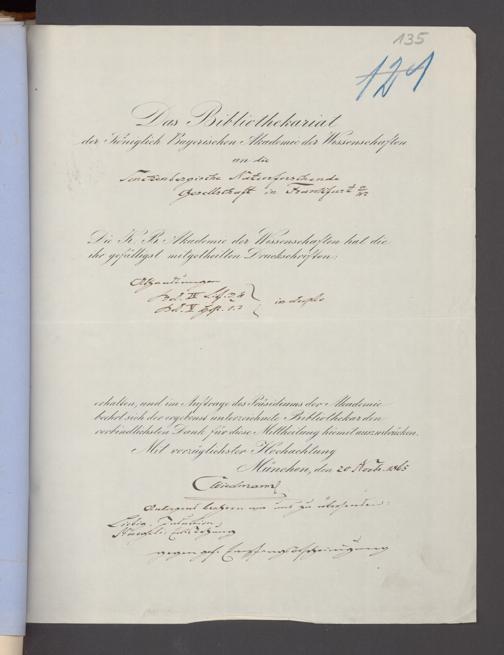 135
121
Das Bibliothekariat
der Königlich Bayerischen Akademie der Wissenschaften
an die
Senckenbergische Naturforschende
Gesellschaft in Frankfurt a/M
Die K. B. Akademie der Wissenschaften hat die
ihr gefälligst mitgetheilten Druckschriften:
Abhandlungen
Bd. IV Lf. 3.4
Bd. V Hft. 1.2
in duplo
erhalten, und im Auftrage des Präsidiums der Akademie
beehrt sich der ergebenst unterzeichnete Bibliothekar den
verbindlichsten Dank für diese Mittheilung hiemit auszudrücken.
Mit vorzüglichster Hochachtung
München, den 20 Novb. 1865
Wiedmann
uns zu übersenden:
Liebig, Induction
Naegeli,
gegen gef. Empfangsbescheinigung